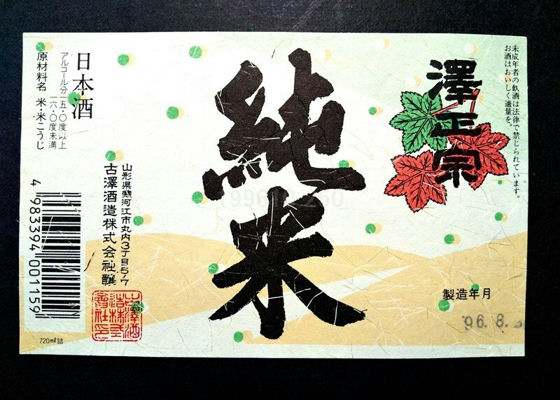 未成年者の飲酒は法律で禁じられています。
お酒はおいしく適量を。
澤正宗
純米
製造年月
96.8.
日本酒
アルコール分一五・〇度以上
一六・〇度未満
原材料名 米・米こうじ
山形県寒河江市丸内3丁目5ノ7
古澤酒造株式会社醸
4 983394 001159
720ml詰